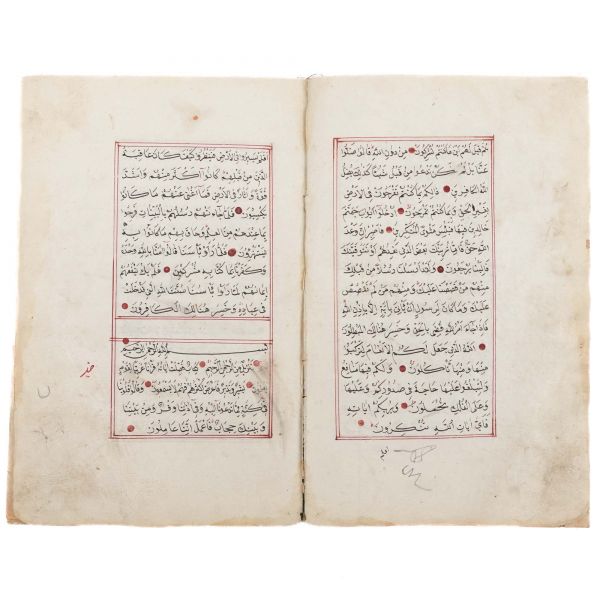 ثم قيل لهم اين ما كنتم تشركون من دون الله قالوا ضلوا
عنا بل لم نكن ندعوا من قبل شيئا كذلك يضل
الله الكافرين ذلكم بما كنتم تفرحون في الارض
بغير الحق وبما كنتم تمرحون ادخلوا ابواب جهنم
خالدين فيها فبئس مثوى المتكبرين فاصبر ان وعد
الله حق فاما نرينك بعض الذي نعدهم او نتوفينك
فالينا يرجعون ولقد ارسلنا رسلا من قبلك
منهم من قصصنا عليك ومنهم من لم نقصص
عليك وما كان لرسول ان ياتي باية الا باذن الله
فاذا جاء امر الله قضي بالحق وخسر هنالك المبطلون
الله الذي جعل لكم الانعام لتركبوا
منها ومنها تاكلون ولكم فيها منافع
ولتبلغوا عليها حاجة في صدوركم وعليها
وعلى الفلك تحملون ويريكم اياته
فاي ايات الله تنكرون
افلم
افلم يسيروا في الارض فينظروا كيف كان عاقبة
الذين من قبلهم كانوا اكثر منهم واشد
قوة واثارا في الارض فما اغنى عنهم ما كانوا
يكسبون فلما جاءتهم رسلهم بالبينات فرحوا
بما عندهم من العلم وحاق بهم ما كانوا به
يستهزؤن فلما راوا باسنا قالوا امنا بالله وحده
وكفرنا بما كنا به مشركين فلم يك ينفعهم
ايمانهم لما راوا باسنا سنت الله التي قد خلت
في عباده وخسر هنالك الكافرون
بسم الله الرحمن الرحيم
حم تنزيل من الرحمن الرحيم كتاب فصلت اياته قرانا عربيا لقوم يعلمون
بشيرا ونذيرا فاعرض اكثرهم فهم لا يسمعون وقالوا قلوبنا
في اكنة مما تدعونا اليه وفي اذاننا وقر ومن بيننا
وبينك حجاب فاعمل اننا عاملون